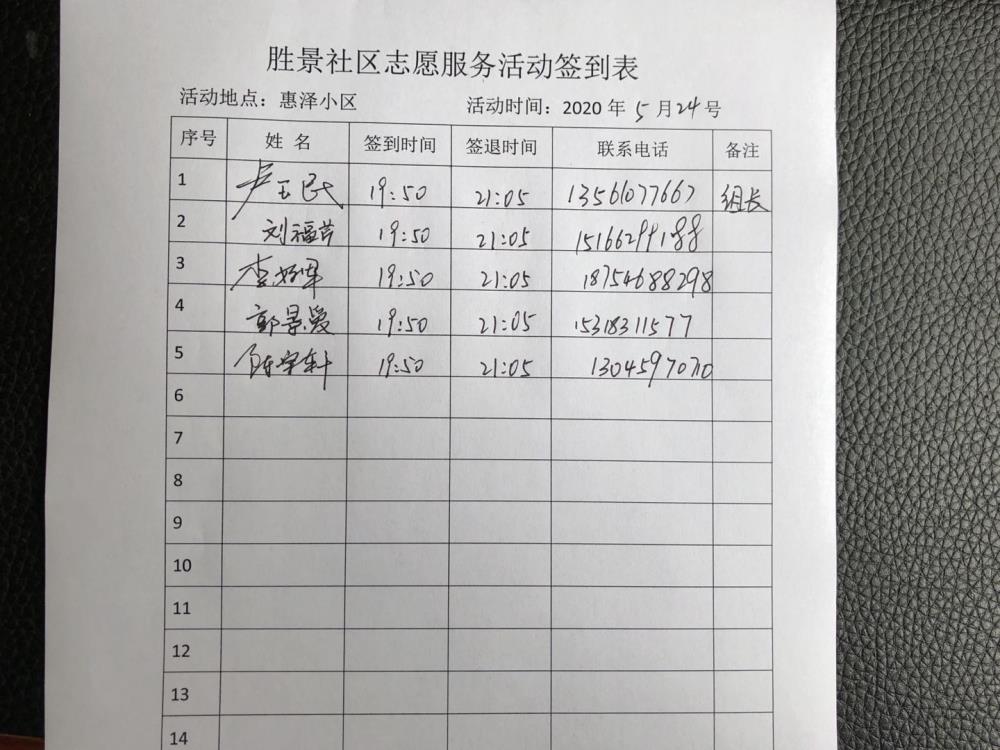 胜景社区志愿服务活动签到表
活动地点：惠泽小区 活动时间：2020 年 5 月 24 号
序号 姓 名 签到时间 签退时间 联系电话 备注
1 卢玉民 19:50 21:05 13561077667 组长
2 刘福芹 19:50 21:05 15166299188
3 李 19:50 21:05 18754688298
4 郭景爱 19:50 21:05 15318311577
5 陈宇轩 19:50 21:05
6
7
8
9
10
11
12
13
14